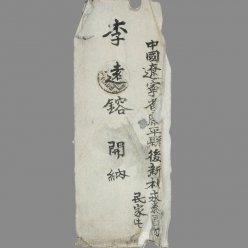 中國遼寧省康平縣後新村
民家屯
李遠鎔 開納